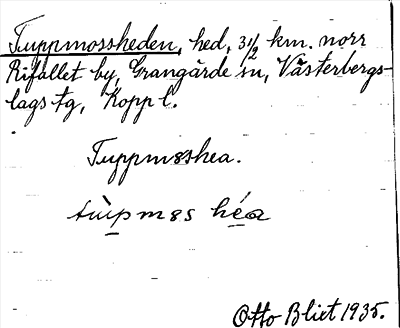 Tuppmossheden, hed, 3 1/2 km. norr
Rifallet by, Grangärde sn, Västerbergs-
lags tg, Kopp l.
Tuppmsshea.
tùpmɘs héa
Otto Blixt 1935.